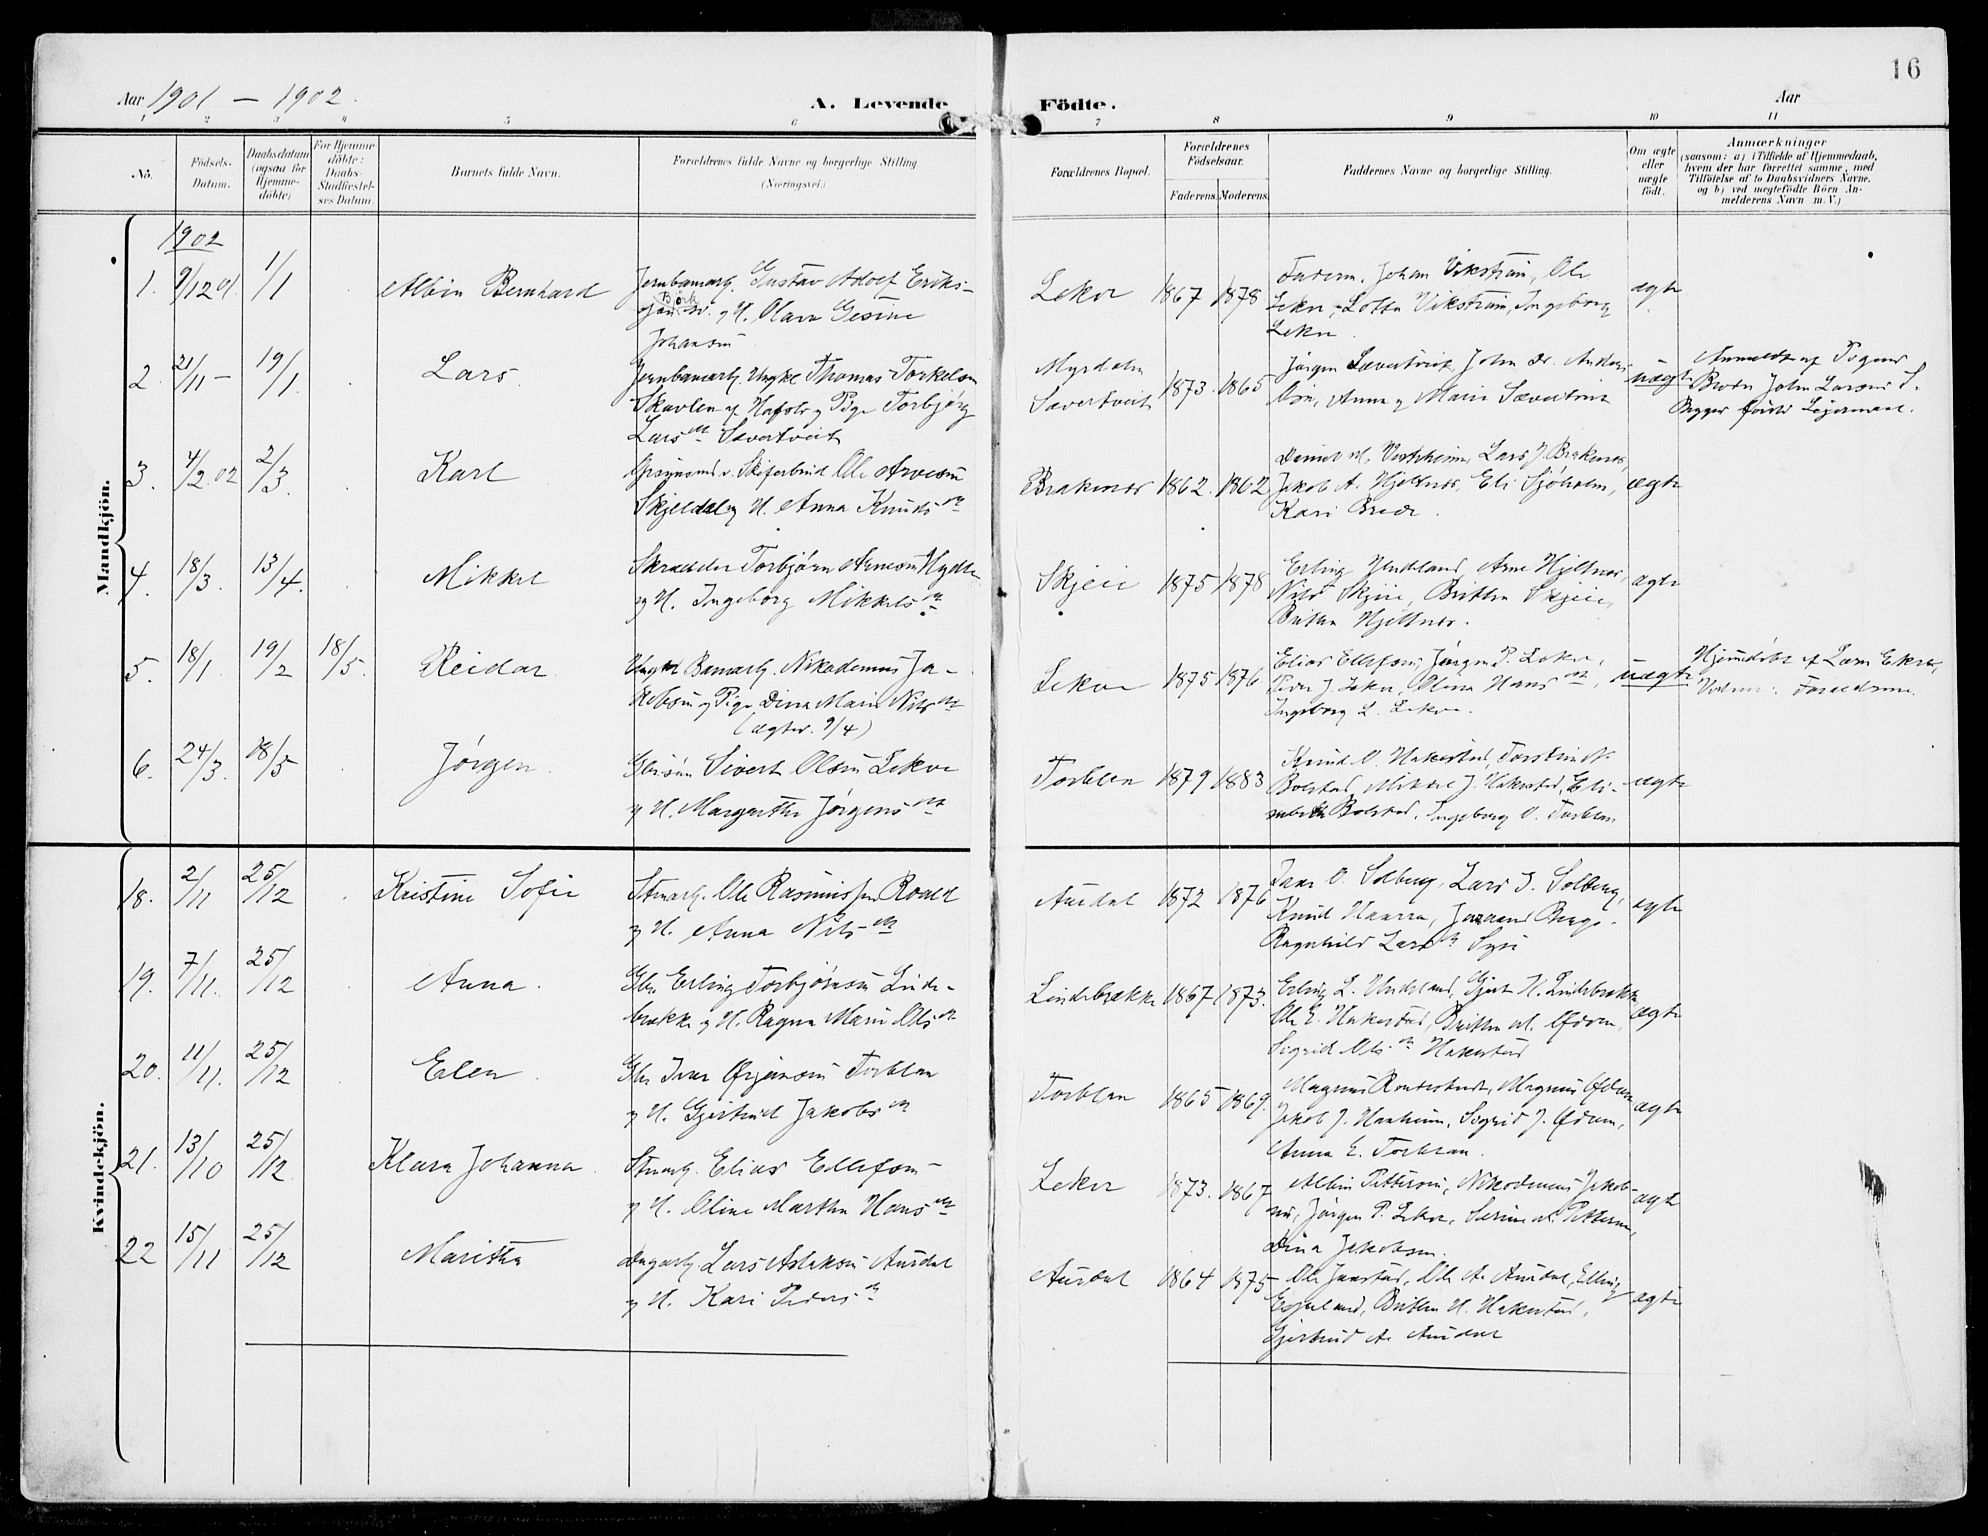 16
Aar 1901 — 1902.
A. Levende
Födte.
Aar
1 2 3 4 5 6 7 8 9 10 11
No.
Födsels-
Datum.
Daabsdatum
(ogsaa for
Hjemme-
döbte)
For Hjemme
döbte:
Daabs-
Stadfæstel-
ses Datum.
Barnets fulde Navn.
Forældrenes fulde Navne og borgerlige Stilling
(Næringsvei.)
Forældrenes Bopæl.
Forældrenes
Födselsaar.
Faderens. Moderens.
Faddernes Navne og borgerlige Stilling.
Om ægte
eller
uægte
født.
Anmærkninger
(saasom: a) i Tilfælde af Hjemmedaab,
hvem der har forrettet samme, med
Tilföielse af to Daabsvidners Navne.
og b) ved uegtefödte Börn An-
melderens Navn m. V.)
Mandkjön.
1902
1. 9/12 01 1/1 Albin Bernhard
Jernbanearb. Gustav Adolf Eriks-
Johansen
Lekve 1867 1878
Faderen, Johan Vikström, Ole
Lekve, Lotta Vikström, Ingeborg
Lekve
ægte
2. 21/11 — 19/1. Lars
Jernbanearb. Ungkl Thomas Torkelsen
Skavlen af Hafslo og Pige Torbjørg
Lars dtr Sævertveit
Myrdalen
Sævertveit 1873. 1865
Jørgen Sævertveit, John Anders
Anna og Marie Sævertveit
uægte
Anmeldt af Pigens
Broder John Larsen S.
Begges første Leiermaal.
3. 4/2 02 2/3. Karl
Ole Arnesen
Skjeldal og H. Anna Knuds dtr
Brakenes 1862. 1862
Lars J. Brakenes,
Jakob A. Hjeltnes, Eli Sjøholm,
Kari
ægte
4. 18/3. 13/4. Mikkel
Skrædder Torbjørn Arnesen
og H. Ingeborg Mikkels dtr
Skjeie 1875 1878
Erling Undeland, Arne Hjeltnes,
Nils Skjeie, Britha Skjeie,
Britha Hjeltnes.
ægte
5. 18/1. 19/2 18/5. Reidar
Ungkl Banearb. Nikodemus Ja-
kobsen og Pige Dina Marie Nils dtr
(ægtev. 9/4)
Lekve 1875 1876
Elias Ellefsen, Jørgen P. Lekve,
Peder J. Lekve, Oline Hans dtr,
Ingeborg L. Lekve.
uægte
Hjemmedøbt af Lars Lekve,
Vidner: Forældrene.
6. 24/3. 18/5 Jørgen
Sivert Olsen Lekve
og H. Margretha Jørgens dtr
Torblaa 1879 1883
Knud O. Hakestad, Torstein N.
Bolstad, Mikkel J. Hakestad, Eli-
sabeth Bolstad, Ingeborg O. Torblaa
ægte
Kvindekjön.
18. 2/11 25/12 Kristine Sofie
Stenarb. Ole Rasmussen Roald
og H. Anna Nils dtr
Aurdal 1872 1876
O. Solberg, Lars J. Solberg,
Knud
Ragnhild Lars dtr
ægte
19. 7/11. 25/12 Anna.
Gbr. Erling Torbjørnsen Linde-
brække og H. Ragna Marie Ols dtr
Lindebrække 1867 1873.
Erling L. Undeland, Gjert H. Lindebrække
Ole E. Hakestad, Britha
Sigrid Ols dtr Hakestad
ægte
20. 11/11. 25/12 Elen.
Gbr Iver Ørjansen Torblaa
og H. Gjertrud Jakobs dtr
Torblaa 1865 1869.
Magnus
Jakob J. Hanheim, Sigrid J.
Anna E. Torblaa.
ægte
21. 13/10 25/12 Klara Johanna.
Stenarb. Elias Ellefsen
og H. Oline Martha Hans dtr
Lekve 1873. 1867
Albin Pettersen, Nikodemus Jakob-
sen, Jørgen P. Lekve, Pettersen,
Dina Jakobsen.
ægte
22 15/11 25/12 Maritha
Dagarb. Lars Aslaksen Aurdal
og H. Kari Peders dtr
Aurdal 1864 1875
Ole Jaastad, Ole A. Aurdal, Elling
Espeland, Britha H. Hakestad,
Gjertrud A. Aurdal
ægte